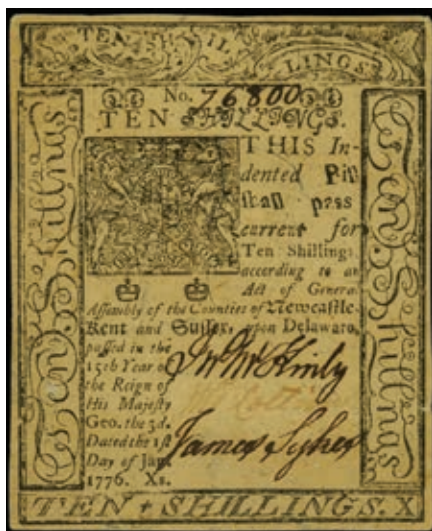 TEN SHIL
LINGS
No. 76800
TEN SHILLINGS.
THIS In-
dented Bill
shall pass
current for
Ten Shillings
according to an
Act of General
Assembly of the Counties of Newcastle
Kent and Sussex, upon Delaware,
passed in the
15th Year of
the Reign of
His Majesty
Geo. the 3d.
Dated the 1st
Day of Jan.
1776. Xs.
Jn McKinly
Collins
James Sykes
Ten Shillings
Ten Shillings
TEN + SHILLINGS. X